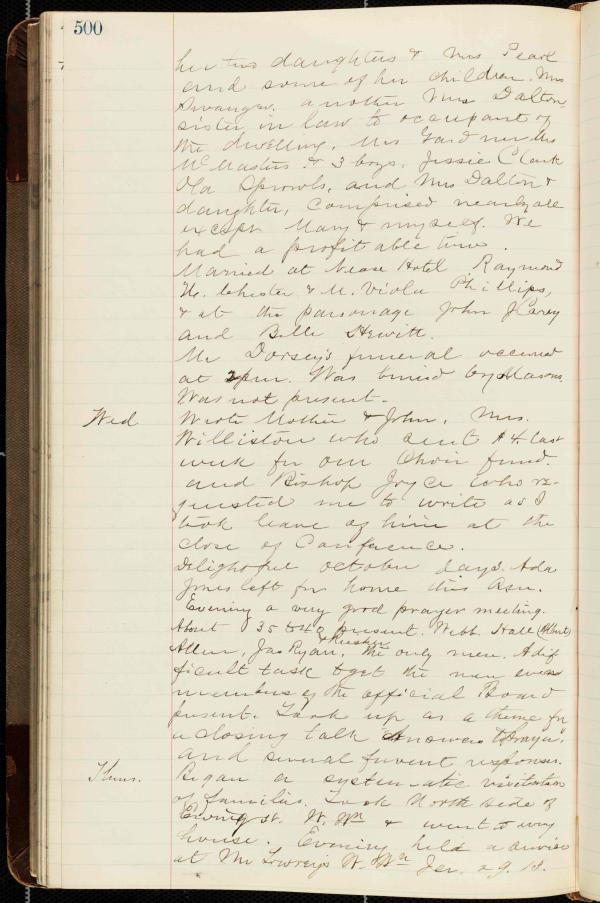 500
her two daughters & Mrs Pearl
and some of her children. Mrs
Swanger. another Mrs Dalton,
sister in law to occupant of
the dwelling, Mrs Gardner Mrs
McMasters & 3 boys. Jessie Clark
Ola Sprowls, and Mrs Dalton &
daughter, comprised nearly all
except Mary & myself. We
had a profitable time.
Married at Nease Hotel Raymond
H. Chester & M. Viola Phillips,
& at the parsonage John J Carey
and Belle Hewitt.
Mr Dorsey's funeral occurred
at 2 pm. Was buried by Masons.
Was not present.
Wed Wrote Mother & John, Mrs.
Williston who sent $4 last
week for our Choir fund.
and Bishop Joyce who re-
quested me to write as I
took leave of him at the
close of Conference.
Delightful October days. Ada
Jones left for home this
Evening a very good prayer meeting.
About 35 to 40 present. Webb. Hall (Albert)
Allen, Jas Ryan, & Rusher the only men. A dif
ficult task to get the men even
members of the official Board
present. Took up as a theme for
a closing talk Answers to Prayer"
and several fervent responses.
Thurs. Began a systematic visitation
of families. Took North side of
Ewing st. W. Wn & went to every
house. Evening held a service
at Mr Lowreys W. Wn Jer. 29. 13.